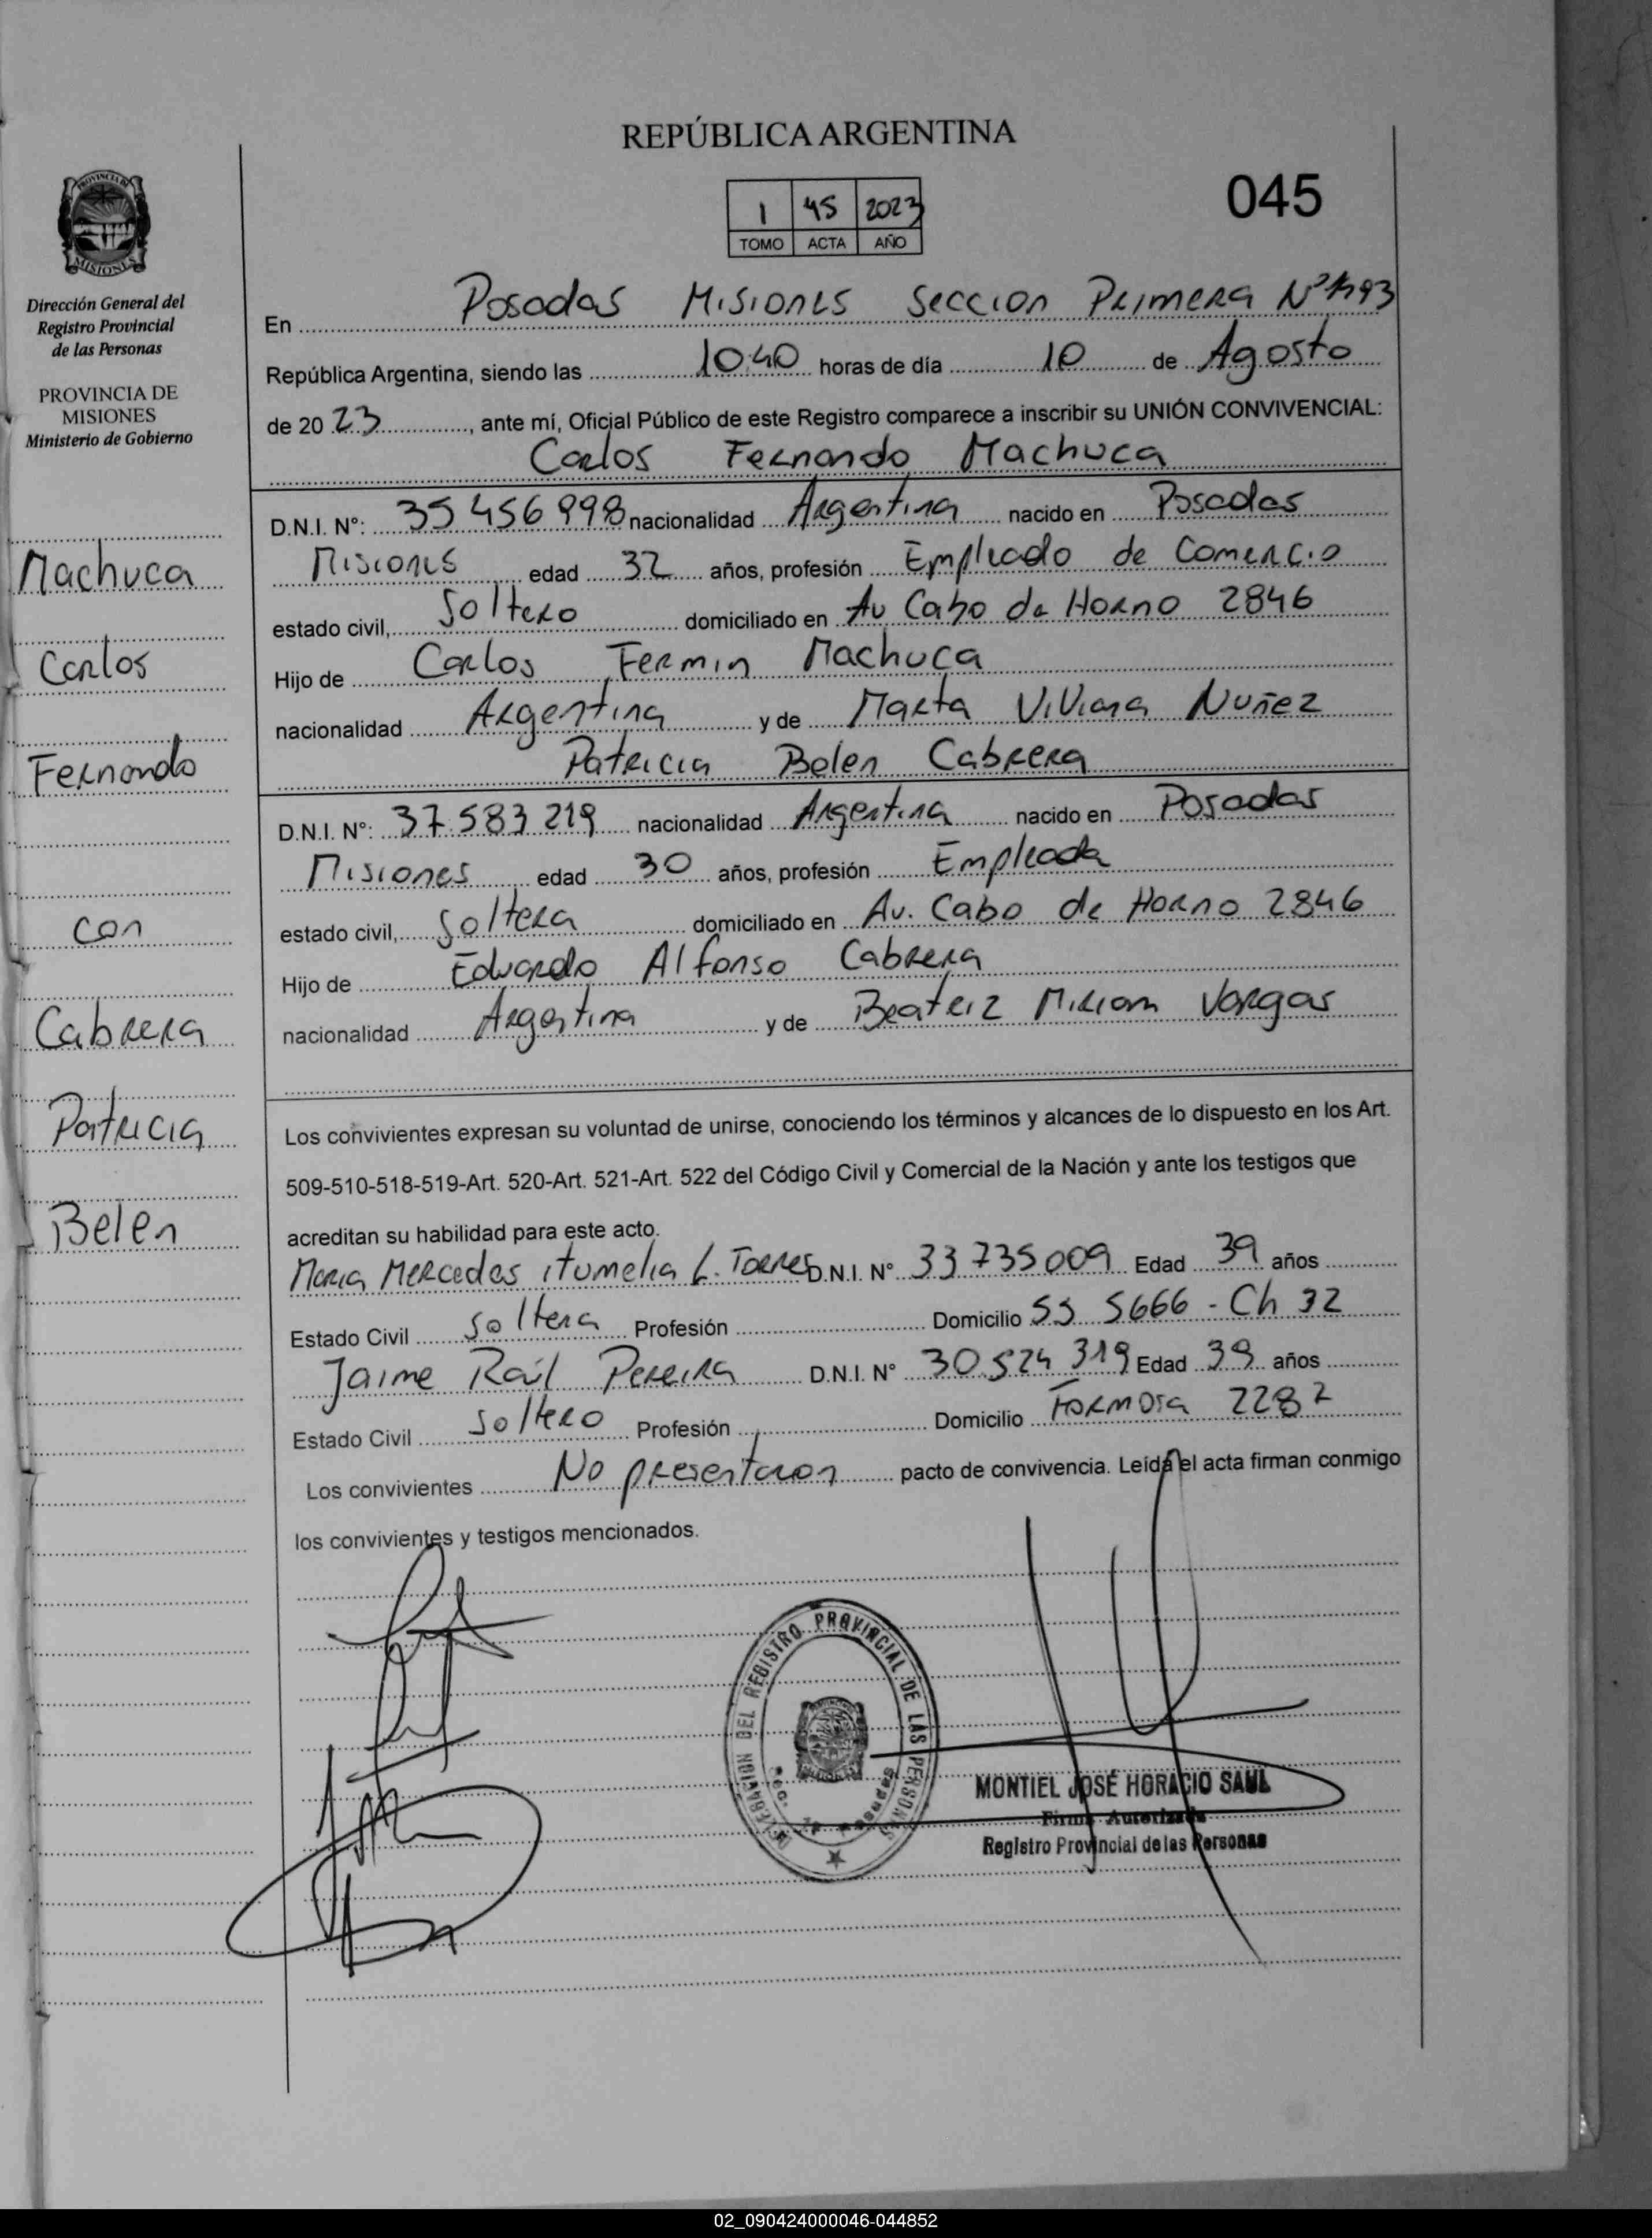 REPÚBLICA ARGENTINA
045
1 45 2023
TOMO ACTA AÑO
PROVINCIA DE
MISIONES
Dirección General del
Registro Provincial
de las Personas
PROVINCIA DE
MISIONES
Ministerio de Gobierno
Machuca
Carlos
Fernando
con
Cabrera
Patricia
Belen
En Posadas Misiones Seccion Primera
República Argentina, siendo las 10:40 horas de día 10 de Agosto
de 20 23, ante mí, Oficial Público de este Registro comparece a inscribir su UNIÓN CONVIVENCIAL:
Carlos Fernando Machuca
D.N.I. N°: 35 456 998 nacionalidad Argentina nacido en Posadas
Misiones edad 32 años, profesión Empleado de Comercio
estado civil, Soltero domiciliado en Av Cabo de Horno 2846
Hijo de Carlos Fermin Machuca
nacionalidad Argentina y de Marta Viviana Nuñez
Patricia Belen Cabrera
D.N.I. N°: 37.583 219 nacionalidad Argentina nacido en Posadas
Misiones edad 30 años, profesión Empleada
estado civil, Soltera domiciliado en Av. Cabo de Horno 2846
Hijo de Eduardo Alfonso Cabrera
nacionalidad Argentina y de Beatriz Miriam Vargas
Los convivientes expresan su voluntad de unirse, conociendo los términos y alcances de lo dispuesto en los Art.
509-510-518-519-Art. 520-Art. 521-Art. 522 del Código Civil y Comercial de la Nación y ante los testigos que
acreditan su habilidad para este acto.
Maria Mercedes itumelia L. Torres D.N.I. N° 33 735 009 Edad 39 años
Estado Civil Soltera Profesión Domicilio 55 5666 - Ch 32
Jaime Raúl Pereira D.N.I. N° 30 524 319 Edad 39 años
Estado Civil Soltero Profesión Domicilio Formosa 2287
Los convivientes No presentaron pacto de convivencia. Leída el acta firman conmigo
los convivientes y testigos mencionados.
DEL REGISTRO PROVINCIAL DE LAS PERSONAS
Sec. 1ª Posadas
MONTIEL JOSÉ HORACIO SAUL
Firma Autorizada
Registro Provincial de las Personas
02_090424000046-044852